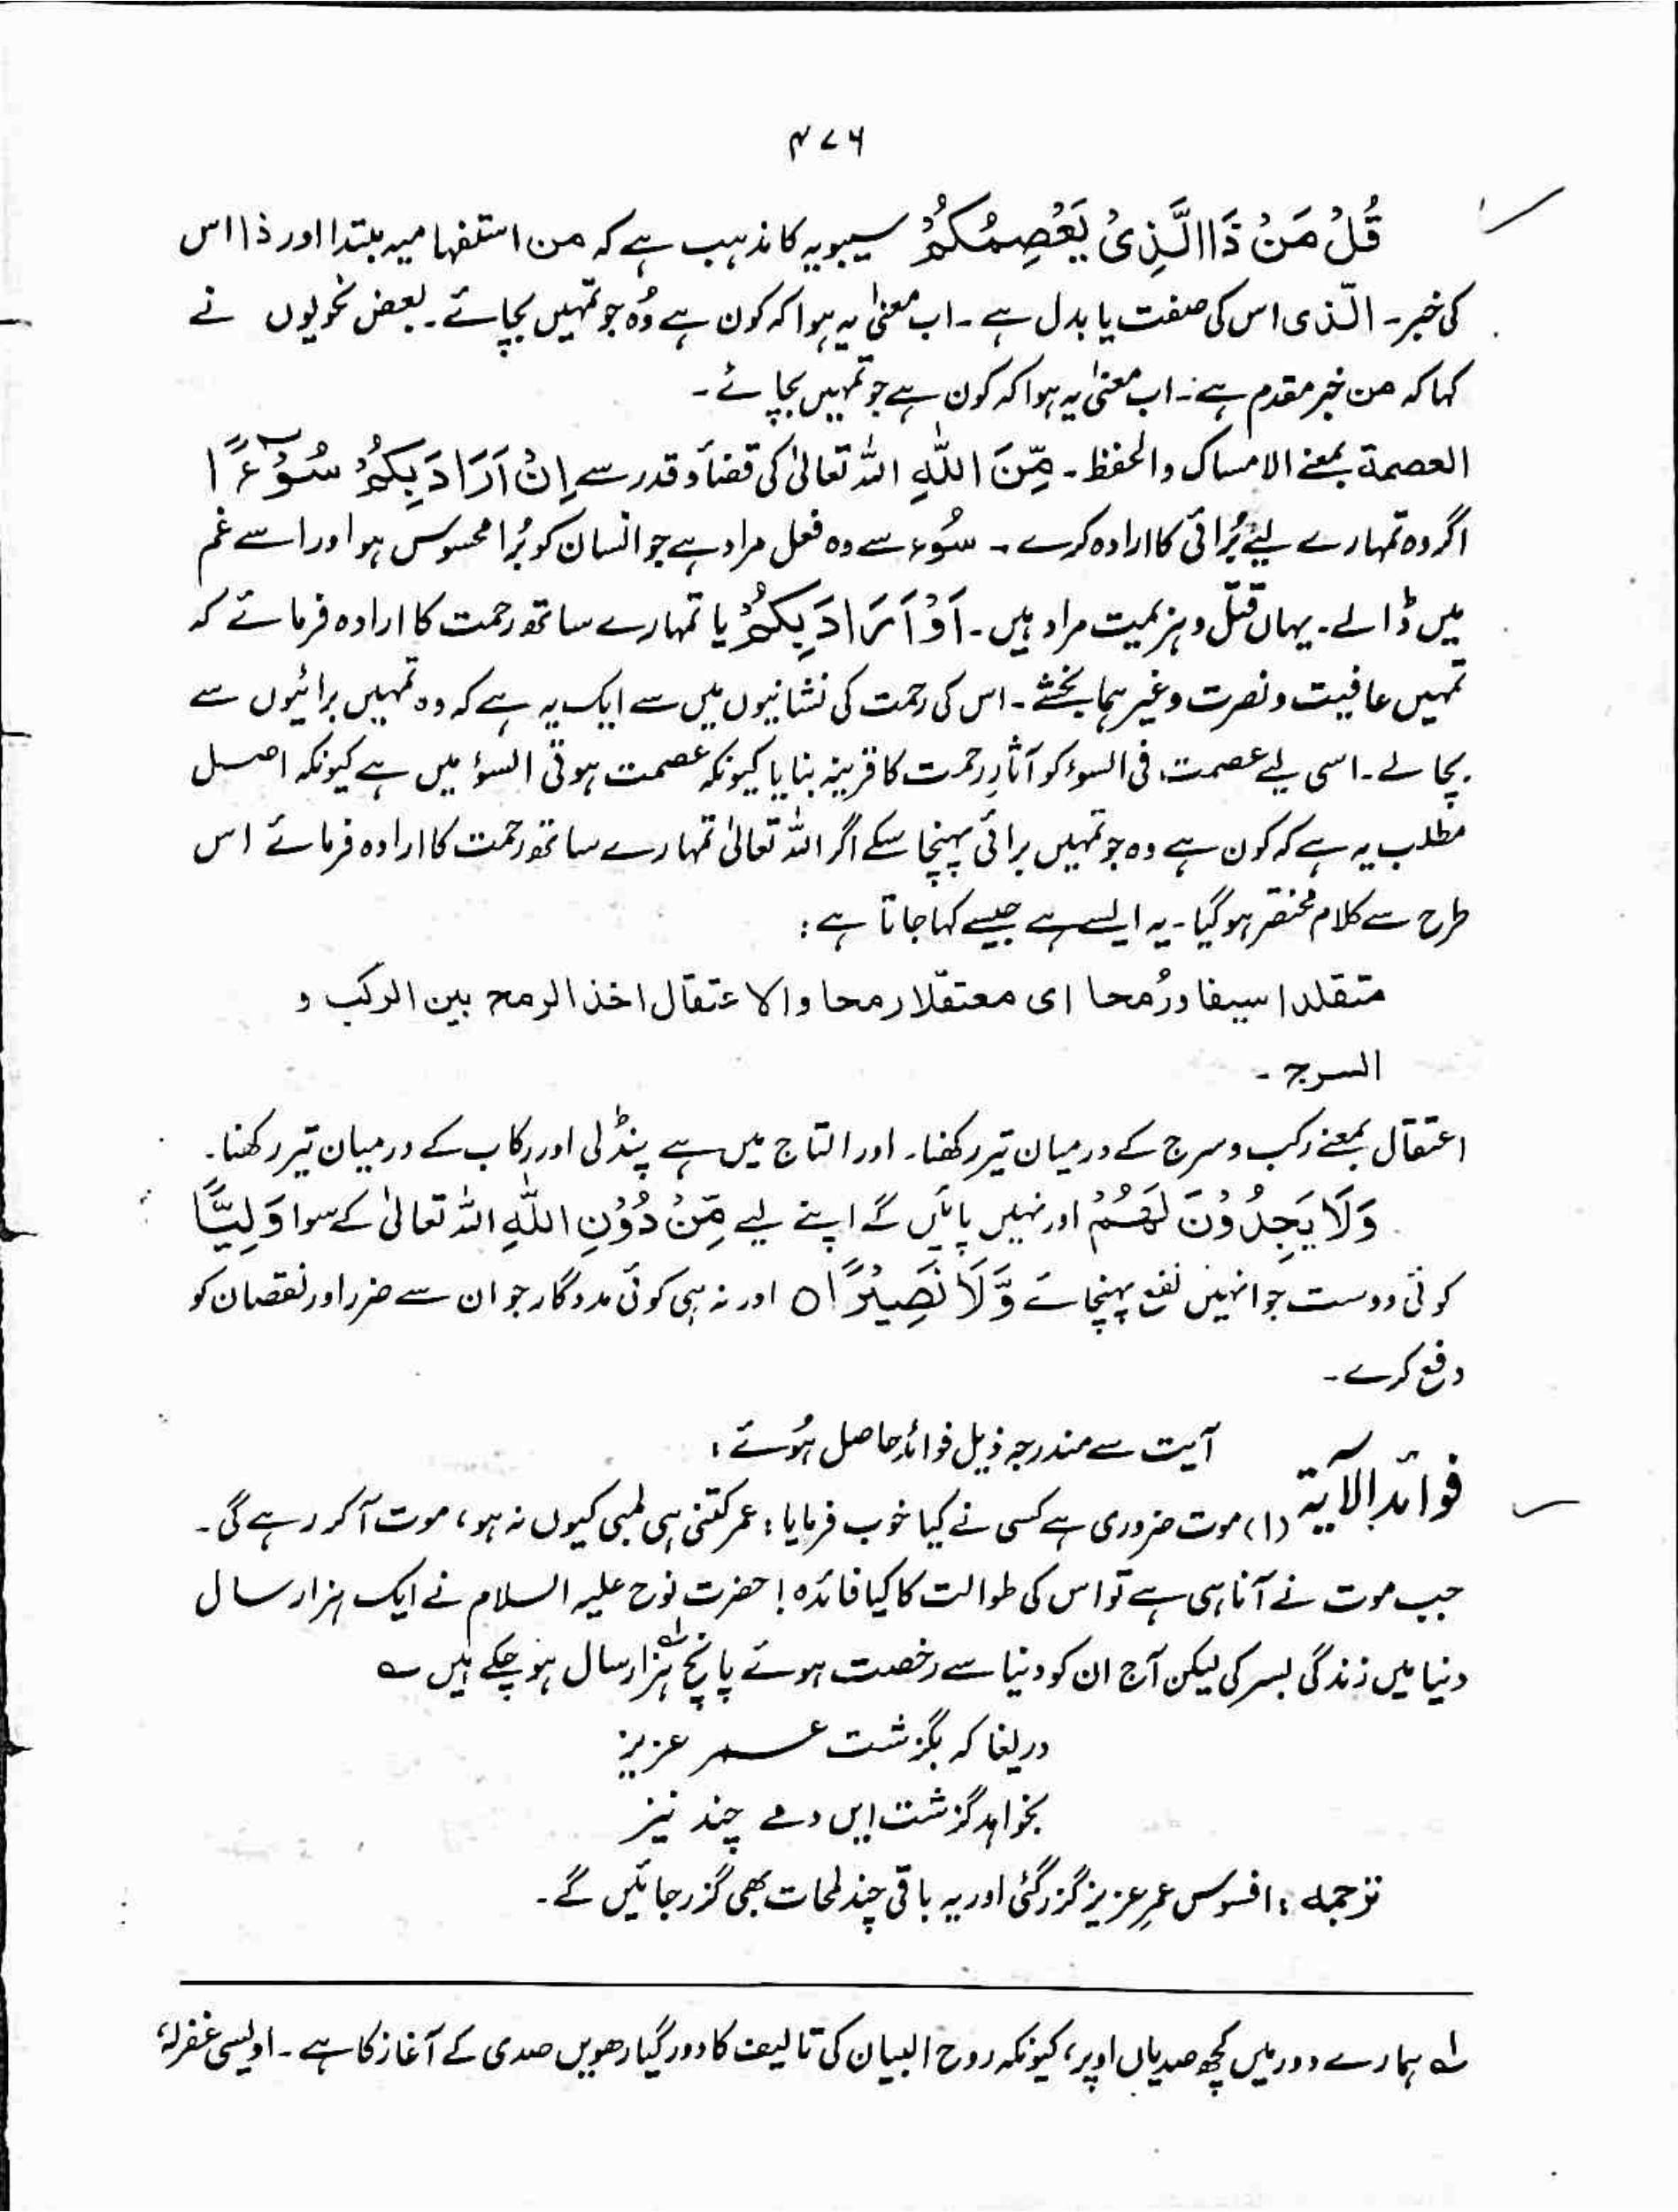 ۴۷۶
قُلْ مَنْ ذَا الَّذِیْ یَعْصِمُکُمْ سیبویہ کا مذہب ہے کہ من استفہامیہ مبتدا اور ذا اس
کی خبر۔ الّذی اس کی صفت یا بدل ہے۔ اب معنیٰ یہ ہوا کہ کون ہے وُہ جو تمہیں بچائے۔ بعض نحویوں نے
کہا کہ من خبر مقدم ہے۔ اب معنیٰ یہ ہوا کہ کون ہے جو تمہیں بچائے۔
العصمۃ بمعنے الامساک والحفظ۔ مِّنَ اللّٰہِ اللہ تعالیٰ کی قضاؤ قدر سے اِنْ اَرَادَ بِکُمْ سُوْٓءًا
اگر وہ تمہارے لیٔے بُرائی کا ارادہ کرے۔ سُوء سے وہ فعل مراد ہے جو انسان کو بُرا محسوس ہو اور اسے غم
میں ڈالے۔ یہاں قتل و ہزیمیت مراد ہیں۔ اَوْ اَرَادَ بِکُمْ یا تمہارے ساتھ رحمت کا ارادہ فرمائے کہ
تمہیں عافیت و نصرت وغیرہما بخشے۔ اس کی رحمت کی نشانیوں میں سے ایک یہ ہے کہ وہ تمہیں برائیوں سے
بچالے۔ اسی لیے عصمت فی السوء کو آثارِ رحمت کا قرینہ بنایا کیونکہ عصمت ہوتی السؤ میں ہے کیونکہ اصل
مطلب یہ ہے کہ کون ہے وہ جو تمہیں برائی پہنچا سکے اگر اللہ تعالیٰ تمہارے ساتھ رحمت کا ارادہ فرمائے اس
طرح سے کلام مختصر ہوگیا۔ یہ ایسے ہے جیسے کہا جاتا ہے :
متقلدا سیفا ورُمحا ای معتقلا رمحا والاعتقال اخذ الرمح بین الرکب و
السرج ۔
اعتقال بمعنے رکب و سرج کے درمیان تیر رکھنا۔ اور التاج میں ہے پنڈلی اور رکاب کے درمیان تیر رکھنا۔
وَلَا یَجِدُوْنَ لَھُمْ اور نہیں پائیں گے اپنے لیے مِّنْ دُوْنِ اللّٰہِ اللہ تعالیٰ کے سوا وَلِیًّا
کوئی دوست جو انہیں نفع پہنچائے وَّلَا نَصِیْرًا ○ اور نہ ہی کوئی مددگار جو ان سے ضرر اور نقصان کو
دفع کرے۔
آیت سے مندرجہ ذیل فوائد حاصل ہُوئے :
فوائد الآیۃ (۱) موت ضروری ہے کسی نے کیا خوب فرمایا : عمر کتنی ہی لمبی کیوں نہ ہو، موت آکر رہے گی۔
جب موت نے آنا ہی ہے تو اس کی طوالت کا کیا فائدہ! حضرت نوح علیہ السلام نے ایک ہزار سال
دنیا میں زندگی بسر کی لیکن آج ان کو دنیا سے رخصت ہوئے پانچ ہزار لہ سال ہوچکے ہیں ؎
دریغا کہ بگزشت عمر عزیز
بخواہد گزشت ایں دمے چند نیز
ترجمہ : افسوس عمرِ عزیز گزر گئی اور یہ باقی چند لمحات بھی گزر جائیں گے۔
لہ ہمارے دور میں کچھ صدیاں اوپر، کیونکہ روح البیان کی تالیف کا دور گیارھویں صدی کے آغاز کا ہے۔ اویسی غفرلہٗ